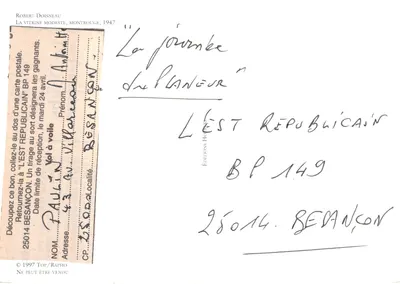 ROBERT DOISNEAU
LA VITRINE MODISTE, MONTROUGE, 1947
Découpez ce bon, collez-le au dos d'une carte postale.
Retournez-la à "L'EST REPUBLICAIN" BP 149
25014 BESANÇON. Un tirage au sort désignera les gagnants.
Date limite de réception, le mardi 24 avril.
Vol à voile
NOM PAULIN Prénom A.
Adresse 43 Av. Villarceau
CP 25000 Localité BESANÇON
© 1997
NE PEUT ÊTRE VENDU
"La journée
du PLANEUR"
L'EST REPUBLICAIN
BP 149
25014. BESANÇON